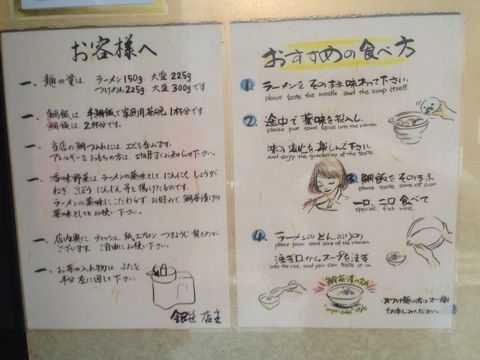 お客様へ
一、麺の量は ラーメン150g 大盛225g
つけめん225g 大盛300gです
一、鯛飯は 半鯛飯で家庭用茶碗1杯分です
鯛飯は 2杯分です。
一、当店の鯛つみれには エビを含みます。
アレルギーをお持ちの方は staffまでお知らせ下さい。
一、香味野菜はラーメンの薬味として にんにく しょうが
ねぎ、ごぼう にんじん 等を揚げたものです。
ラーメンの薬味にこだわらず お好みで 鯛茶漬けの
薬味としてもお使い下さい。
一、店内奥に ティッシュ 紙エプロン つまようじ 髪どめが
ございます。ご自由にお使い下さい。
一、お茶の入れ物は ふたを
半分 左に回して下さい。
銀笹 店主
おすすめの食べ方
1. ラーメンを そのまま味わって下さい。
please taste the noodle and the soup itself.
2. 途中で 薬味を投入し
please put some spice into the ramen
味の変化を楽しんで下さい
and enjoy the gradation of the taste.
3. 鯛飯を そのまま
please taste some of our
一口、二口 食べて
special fish rice
4. ラーメンのどんぶりの
please pour some soup of the ramen
注ぎ口からスープを注ぎ
into the rice, and you can taste it in
鯛茶漬けへ
"ocya-zuke" style